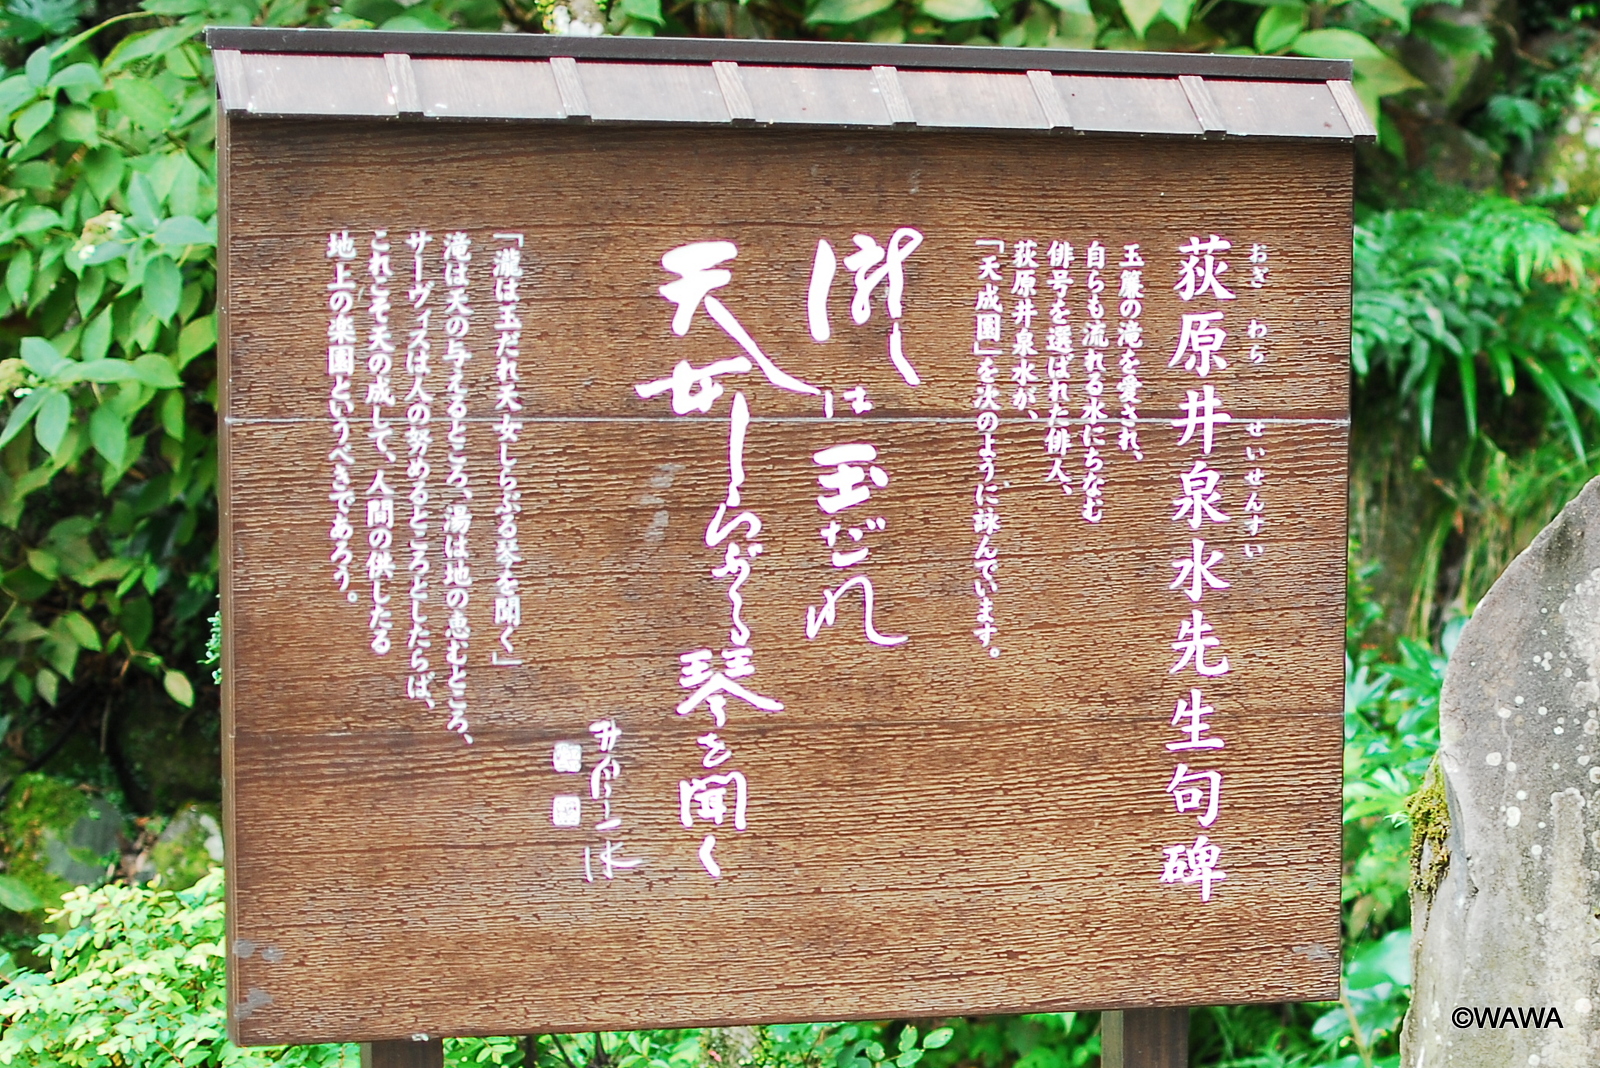 荻原井泉水先生句碑
おぎ わら せいせんすい
玉簾の滝を愛され、
自らも流れる水にちなむ
俳号を選ばれた俳人、
荻原井泉水が、
「天成園」を次のように詠んでいます。
瀧は玉だれ
天女しらぶる琴を聞く
井泉水
「瀧は玉だれ天女しらぶる琴を聞く」
滝は天の与えるところ、湯は地の恵むところ、
サーヴィスは人の努めるところとしたらば、
これこそ天の成して、人間の供したる
地上の楽園というべきであろう。
©WAWA